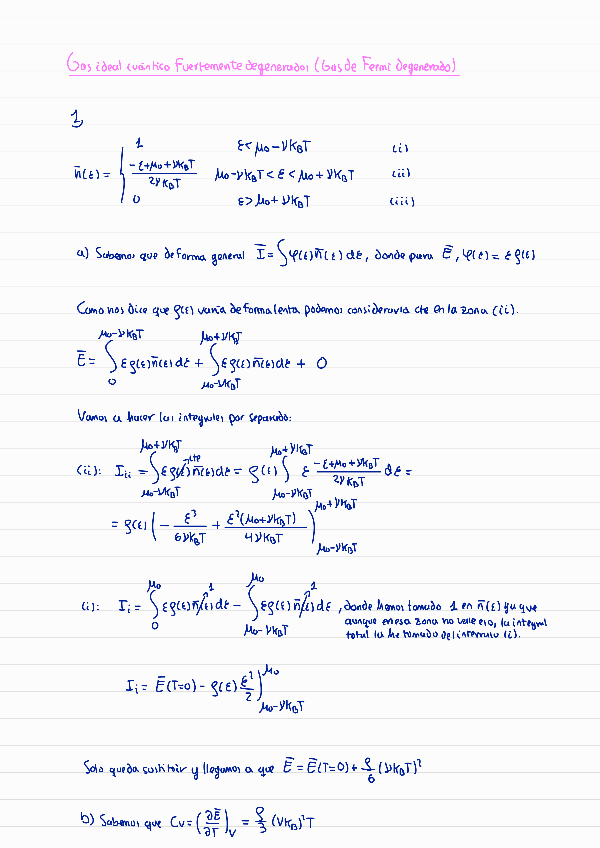 Gas ideal cuántico Fuertemente degenerados (Gas de Fermi Degenerado)
1,
n̄(ε) = { 1 ε < μ₀ - νK_BT (i)
(-ε+μ₀+νK_BT)/(2νK_BT) μ₀-νK_BT < ε < μ₀+νK_BT (ii)
0 ε > μ₀ + νK_BT (iii)
a) Sabemos que de forma general Ī = ∫φ(ε)n̄(ε)dε, donde para Ē, φ(ε) = ερ(ε)
Como nos dice que ρ(ε) varía de forma lenta podemos considerarla cte en la zona (ii).
Ē = ∫_0^{μ₀-νK_BT} ερ(ε)n̄(ε)dε + ∫_{μ₀-νK_BT}^{μ₀+νK_BT} ερ(ε)n̄(ε)dε + 0
Vamos a hacer las integrales por separado:
(ii): I_ii = ∫_{μ₀-νK_BT}^{μ₀+νK_BT} ερ(ε)^{cte} n̄(ε)dε = ρ(ε) ∫_{μ₀-νK_BT}^{μ₀+νK_BT} ε (-ε+μ₀+νK_BT)/(2νK_BT) dε =
= ρ(ε) ( - ε³/(6νK_BT) + ε²(μ₀+νK_BT)/(4νK_BT) )_{μ₀-νK_BT}^{μ₀+νK_BT}
(i): I_i = ∫_0^{μ₀} ερ(ε)n̄(ε)^1 dε - ∫_{μ₀-νK_BT}^{μ₀} ερ(ε)n̄(ε)^1 dε, donde hemos tomado 1 en n̄(ε) ya que
aunque en esa zona no vale eso, la integral
total la he tomado del intervalo (i).
I_i = Ē(T=0) - ρ(ε) ε²/2 )_{μ₀-νK_BT}^{μ₀}
Solo queda sustituir y llegamos a que Ē = Ē(T=0) + ρ/6 (νK_BT)²
b) Sabemos que Cv = (∂Ē/∂T)_V = ρ/3 (νK_B)²T